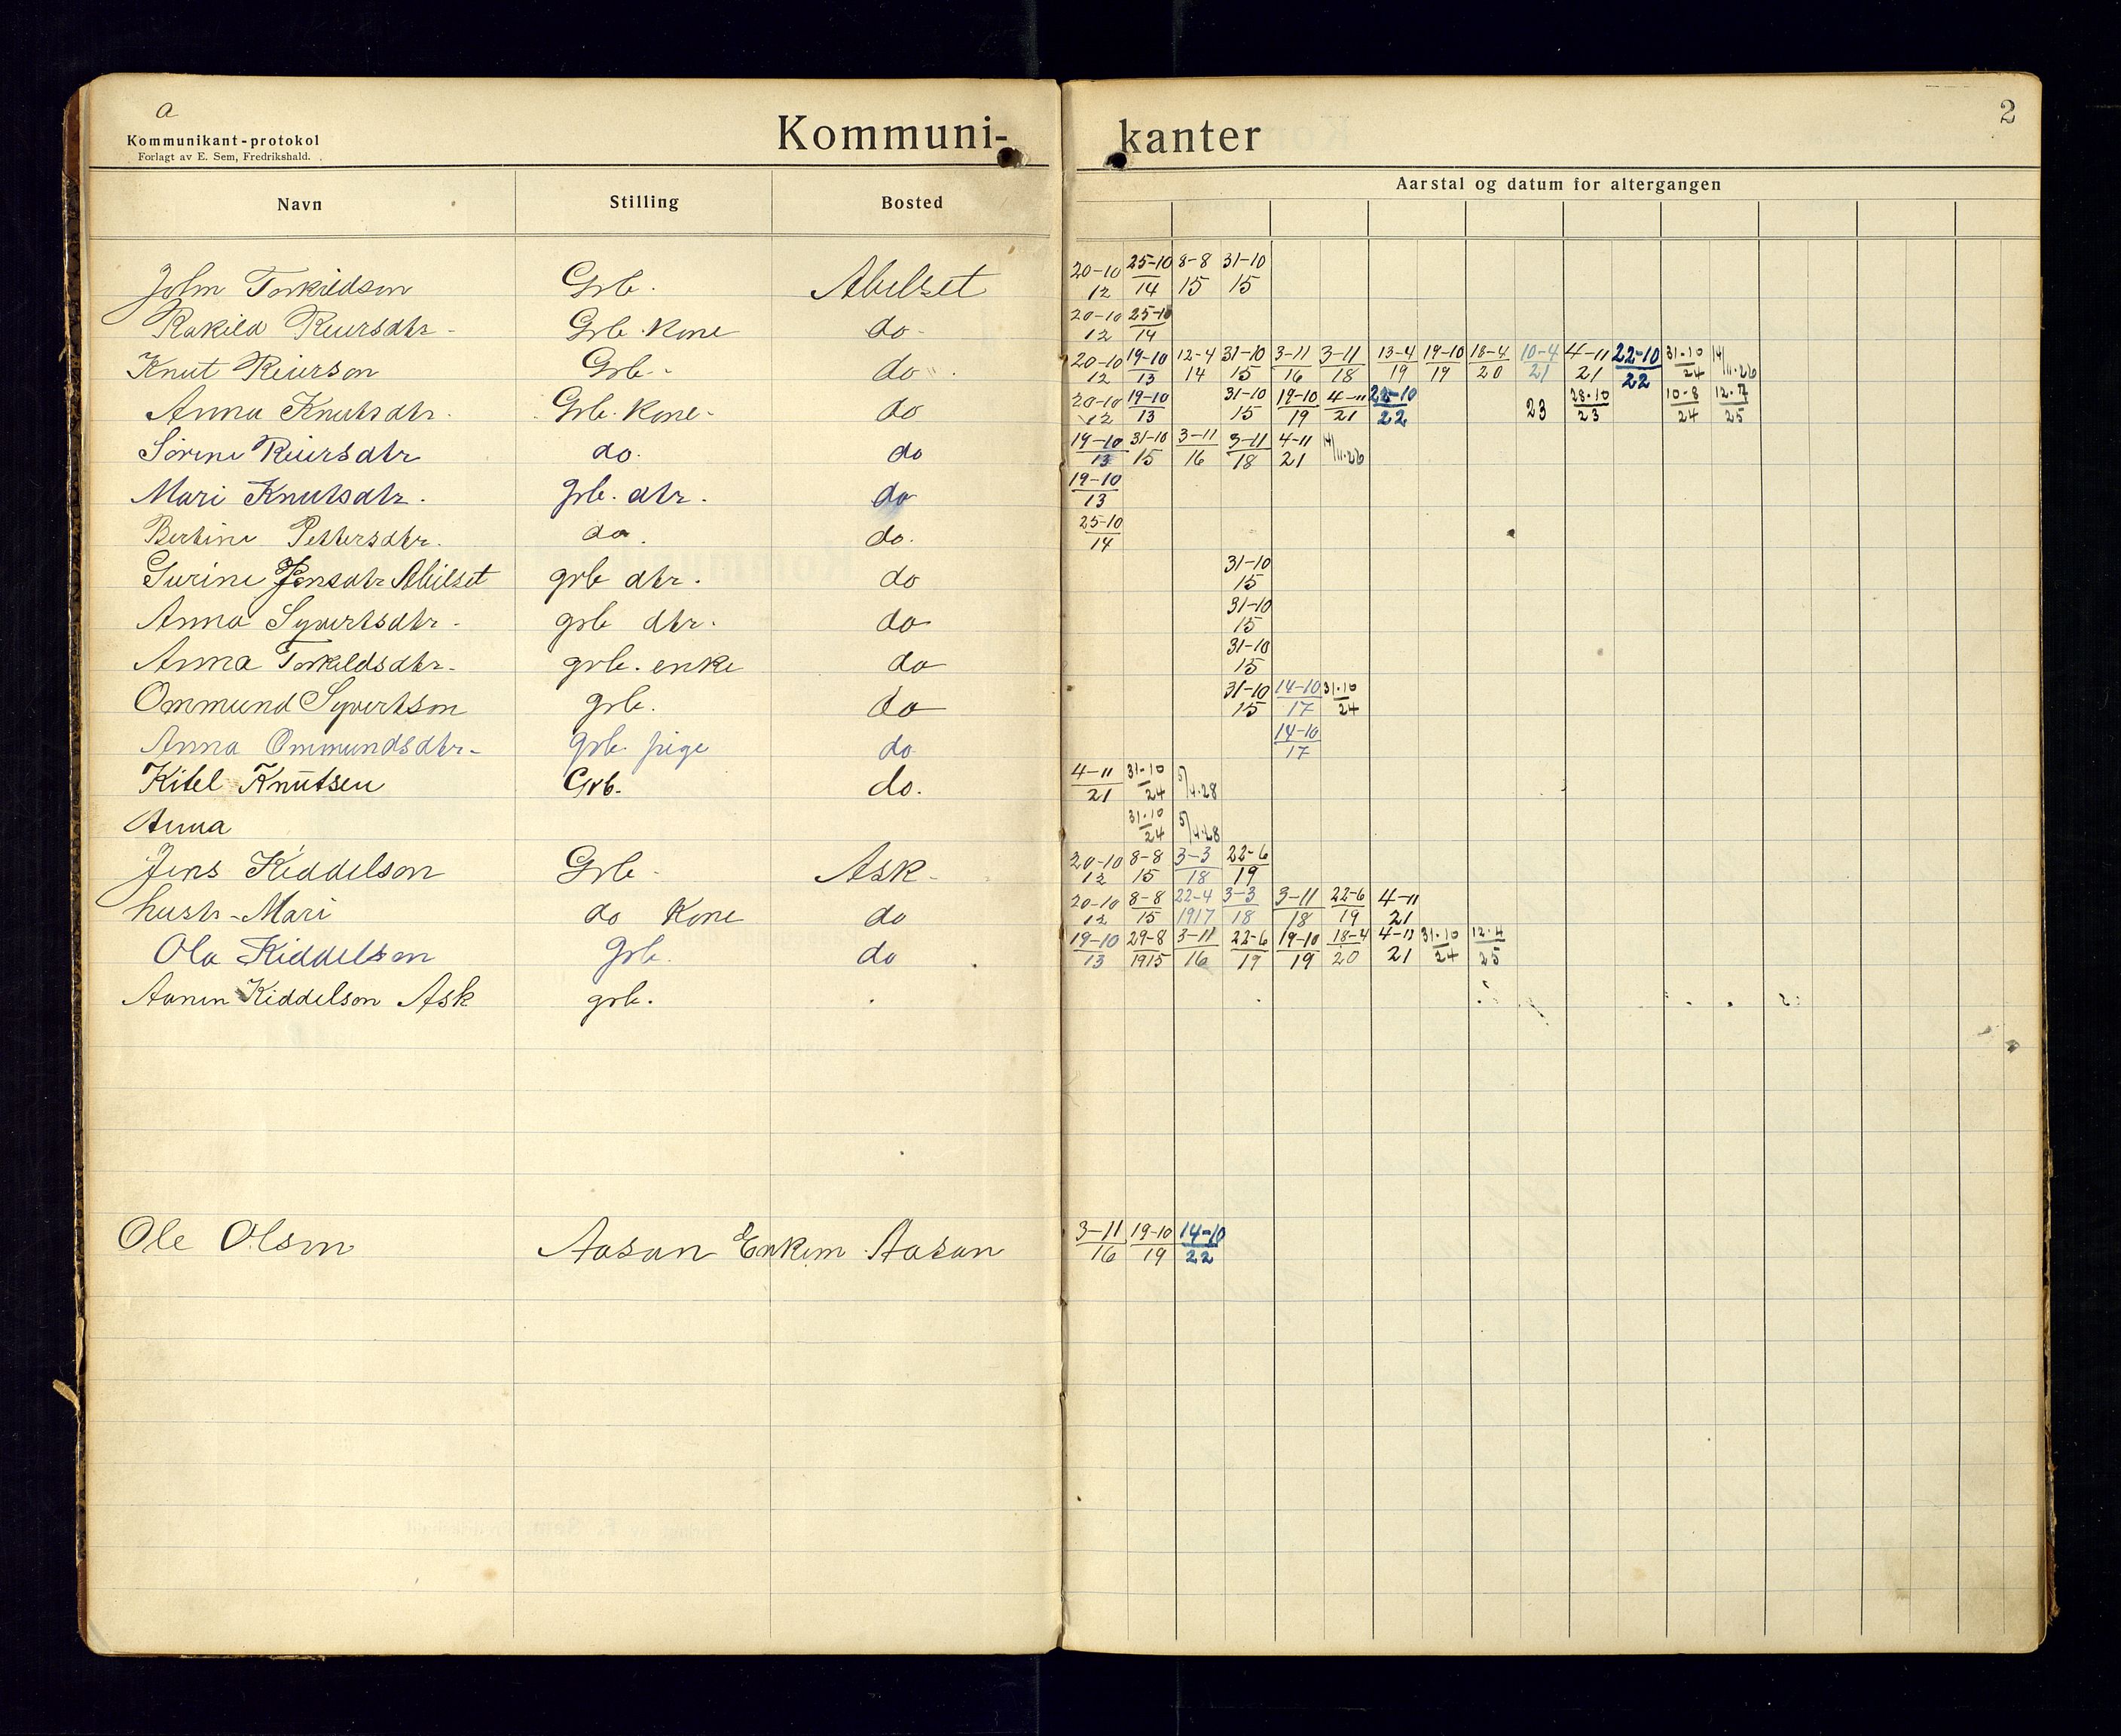 a
2
Kommunikant-protokol
Forlagt av E. Sem, Fredrikshald.
Kommuni- kanter
Aarstal og datum for altergangen
Navn Stilling Bosted
John Torkildson Grb. Abelset 20-10/12 25-10/14 8-8/15 31-10/15
Rakild Reiersdtr - Grb. Kone do- 20-10/12 25-10/14
Knut Reierson Grb- do 20-10/12 19-10/13 12-4/14 31-10/15 3-11/16 3-11/18 13-4/19 19-10/19 18-4/20 10-4/21 4-11/21 22-10/22 31-10/24 14/11-26
Anna Knutsdtr. Grb. Kone- do 20-10/12 19-10/13 31-10/15 19-10/19 4-11/21 22-10/22 23 28-10/23 10-8/24 12-7/25
Sörine Reiersdtr do. do 19-10/13 31-10/15 3-11/16 3-11/18 4-11/21 14/11-26
Mari Knutsdtr. grb. dtr. do 19-10/13
Bertine Pettersdtr. do. do. 25-10/14
Gurine Jensdtr Abilset grb dtr. do 31-10/15
Anna Syvertsdtr - grb dtr. do 31-10/15
Anna Torkildsdtr- grb. enke do 31-10/15
Ommund Syvertson grb. do 31-10/15 14-10/17 31-10/24
Anna Ommundsdtr- grb. pige do 14-10/17
Kitel Knutsen Grb. do. 4-11/21 31-10/24 5/4-28
Anna 31-10/24 5/4-28
Jens Kiddelson Grb - Ask- 20-10/12 8-8/15 3-3/18 22-6/19
hustr-Mari do Kone do 20-10/12 8-8/15 22-4/1917 3-3/18 3-11/18 22-6/19 4-11/21
Ola Kiddelson Grb. do 19-10/13 29-8/1915 3-11/16 22-6/19 19-10/19 18-4/20 4-11/21 31-10/24 12-4/25
Aanen Kiddelson Ask grb.
Ole Olson Aasan Aasan 3-11/16 19-10/19 14-10/22